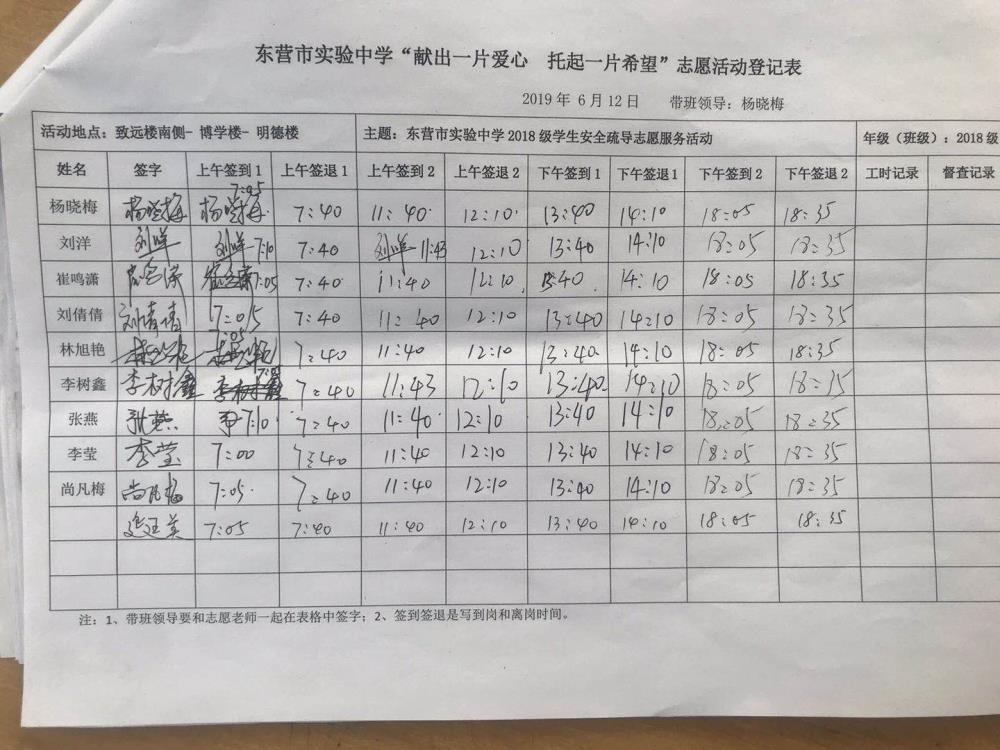 东营市实验中学“献出一片爱心 托起一片希望”志愿活动登记表
2019 年 6 月 12 日 带班领导：杨晓梅
活动地点：致远楼南侧- 博学楼- 明德楼 主题：东营市实验中学 2018 级学生安全疏导志愿服务活动 年级（班级）: 2018 级
姓名 签字 上午签到 1 上午签退 1 上午签到 2 上午签退 2 下午签到 1 下午签退 1 下午签到 2 下午签退 2 工时记录 督查记录
杨晓梅 杨晓梅 杨晓梅 7:05 7:40 11:40 12:10 13:40 14:10 18:05 18:35
刘洋 刘洋 刘洋 7:10 7:40 刘洋 11:43 12:10 13:40 14:10 18:05 18:35
崔鸣潇 7:05 7:40 11:40 12:10 13:40 14:10 18:05 18:35
刘倩倩 刘倩倩 7:05 7:40 11:40 12:10 13:40 14:10 18:05 18:35
林旭艳 7:05 7:40 11:40 12:10 13:40 14:10 18:05 18:35
李树鑫 李树鑫 李树鑫 7:40 11:43 12:10 13:40 14:10 18:05 18:35
张燕 张燕 7:10 7:40 11:40 12:10 13:40 14:10 18:05 18:35
李莹 李莹 7:00 7:40 11:40 12:10 13:40 14:10 18:05 18:35
尚凡梅 尚凡梅 7:05 7:40 11:40 12:10 13:40 14:10 18:05 18:35
7:05 7:40 11:40 12:10 13:40 14:10 18:05 18:35
注：1、带班领导要和志愿老师一起在表格中签字；2、签到签退是写到岗和离岗时间。